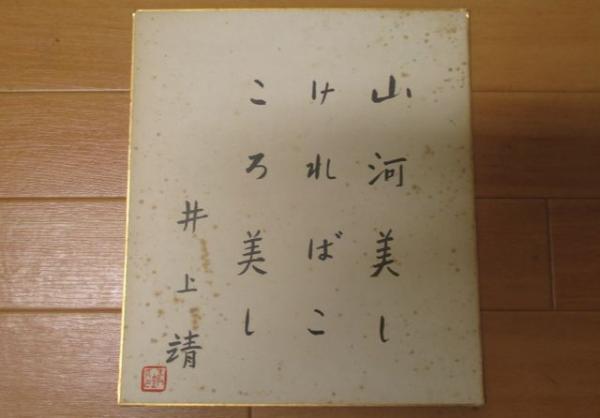 山河美し
ければこ
ころ美し
井上靖